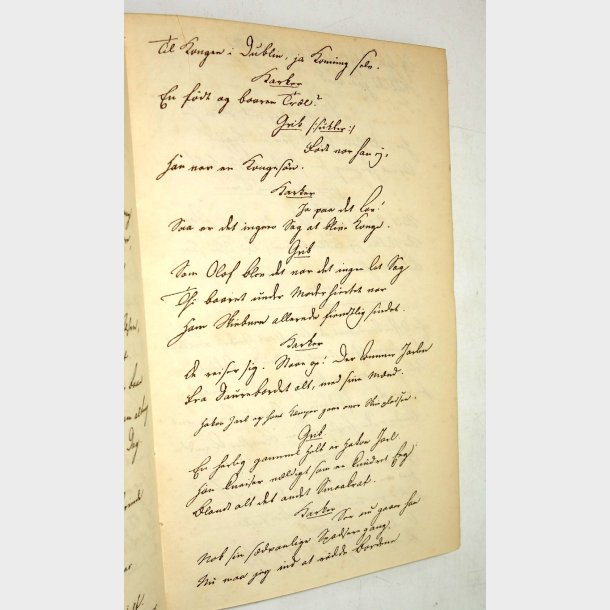 Til Kongen i Dublin, ja Konning selv.
Karker
En født og baaren Træl?
Grib
Født var han ej,
Han var en Kongesøn.
Karker
Ja paa det Lav!
Saa er det ingen Sag at blive Konge.
Grib
Som Olaf blev det var det ingen let Sag
Thi baaret under Moderhiertet var
ham Skiebnen allerede fiendtlig sindet.
Karker
De reiser sig. Staae op! Der kommer Jarlen
fra Davrebordet alt, med sine Mænd.
Hakon Jarl og hans Kæmper gaae over Skuepladsen.
Grib
En herlig gammel Helt er Hakon Jarl
Han kneiser vældigt som en knudret Eeg
Blandt alt det andet Smaakrat.
Karker
nu gaaer han
Nok sin sædvanlige Spadseregang.
Nu maa jeg ind at rydde Bordene